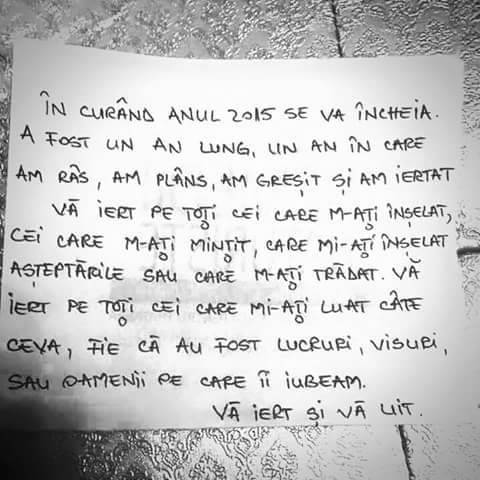 ÎN CURÂND ANUL 2015 SE VA ÎNCHEIA.
A FOST UN AN LUNG, UN AN ÎN CARE
AM RÂS, AM PLÂNS, AM GREȘIT ȘI AM IERTAT
VĂ IERT PE TOȚI CEI CARE M-AȚI ÎNȘELAT,
CEI CARE M-AȚI MINȚIT, CARE MI-AȚI ÎNȘELAT
AȘTEPTĂRILE SAU CARE M-AȚI TRĂDAT. VĂ
IERT PE TOȚI CEI CARE MI-AȚI LUAT CÂTE
CEVA, FIE CĂ AU FOST LUCRURI, VISURI,
SAU OAMENII PE CARE ÎI IUBEAM.
VĂ IERT ȘI VĂ UIT.